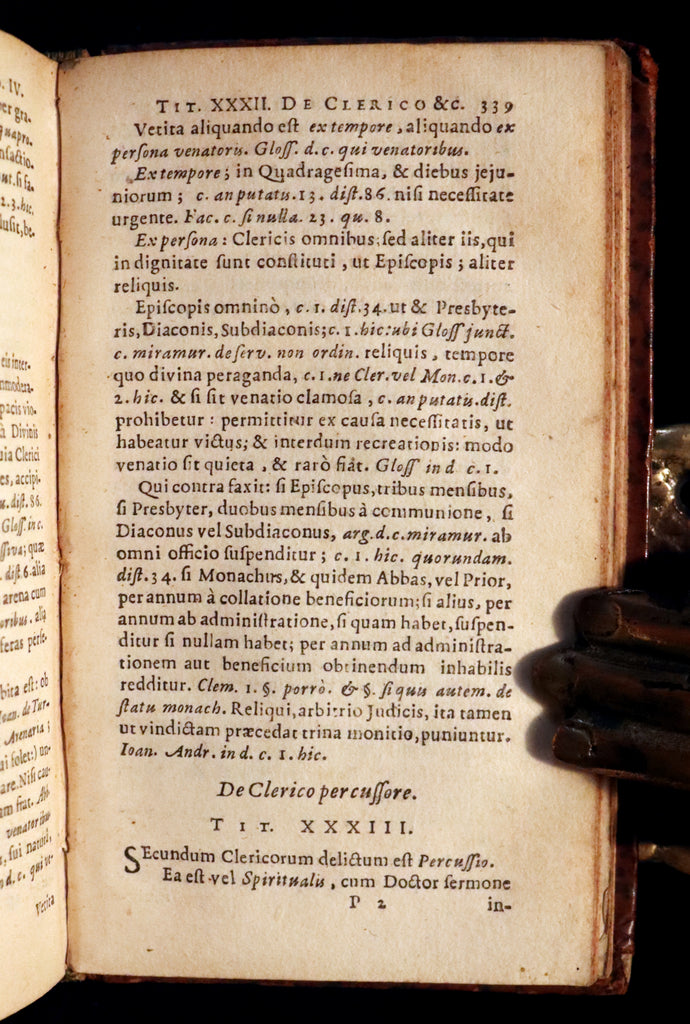 . IV.
er gra.
quapro.
nsactio.
ut. si fa.
2. 3. hic.
lusit, be.
eit inter-
mmodera-
pacis vio-
à Divinis
uia Clerici
es, accipi-
u. dist. 86.
Gloss. in c.
ssiva; quæ
dist. 6. alia
arena cum
oribus. aliq
feras perse-
bita est: ob
Ioan. de Tur-
Arenaria;
ui solet:) un-
are. Nisi cau-
am fiat. Abb
venatoribus
, sui natura,
nd. c. qui ve-
Vetita
TIT. XXXII. DE CLERICO &c. 339
Vetita aliquando est ex tempore, aliquando ex
persona venatoris. Gloss. d. c. qui venatoribus.
Ex tempore; in Quadragesima, & diebus jeju-
niorum; c. an putatis. 13. dist. 86. nisi necessitate
urgente. Fac. c. si nulla. 23. qu. 8.
Ex persona: Clericis omnibus; sed aliter iis, qui
in dignitate sunt constituti, ut Episcopis; aliter
reliquis.
Episcopis omninò, c. 1. dist. 34. ut & Presbyte-
ris, Diaconis, Subdiaconis; c. 1. hic: ubi Gloss junct.
c. miramur. de serv. non ordin. reliquis, tempore
quo divina peraganda, c. 1. ne Cler. vel Mon. c. 1. &
2. hic. & si sit venatio clamosa, c. an putatis. dist.
prohibetur: permittitur ex causa necessitatis, ut
habeatur victus; & interdum recreationis: modo
venatio sit quieta, & rarò fiat. Gloss in d c. 1.
Qui contra faxit: si Episcopus, tribus mensibus,
si Presbyter, duobus mensibus à communione, si
Diaconus vel Subdiaconus, arg. d. c. miramur. ab
omni officio suspenditur; c. 1. hic. quorundam.
dist. 34. si Monachus, & quidem Abbas, vel Prior,
per annum à collatione beneficiorum; si alius, per
annum ab administratione, si quam habet, suspen-
ditur si nullam habet; per annum ad administra-
tionem aut beneficium obtinendum inhabilis
redditur. Clem. 1. §. porrò. & §. si quis autem. de
statu monach. Reliqui, arbitrio Judicis, ita tamen
ut vindictam præcedat trina monitio, puniuntur.
Ioan. Andr. in d. c. 1. hic.
De Clerico percussore.
TIT. XXXIII.
SEcundum Clericorum delictum est Percussio.
Ea est vel Spiritualis, cum Doctor sermone
P 2 in-